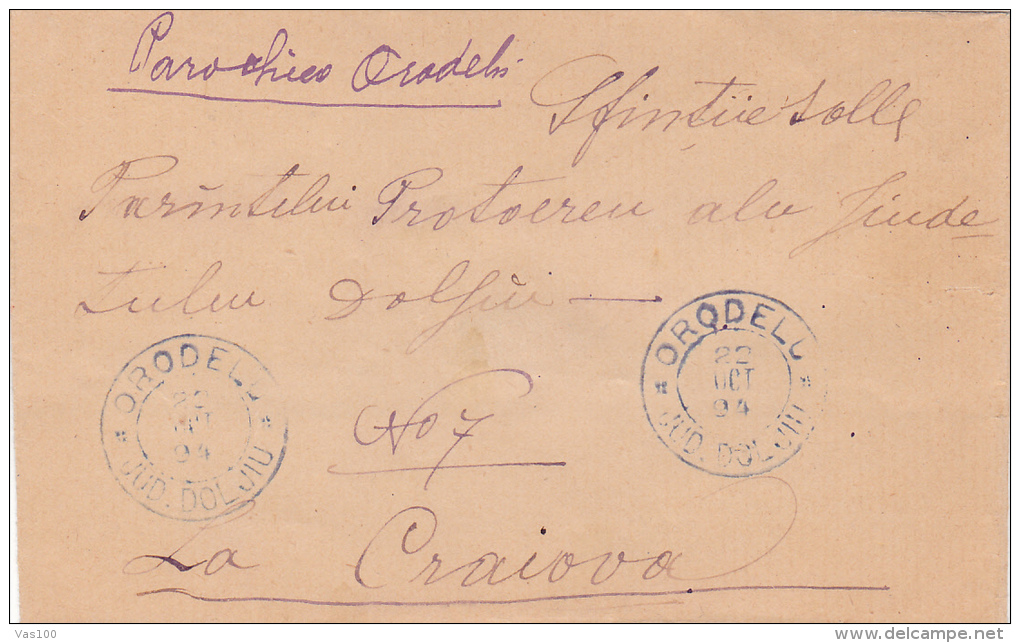 Parochiea Orodelu
Sfinţiiesalle
Parintelui Protoereu alu Jiude=
tului Doljiu —
* ORODELU *
22
OCT
94
JUD. DOLJIU
* ORODELU *
22
OCT
94
JUD. DOLJIU
No 7
La Craiova
Vas100
delcampe.net